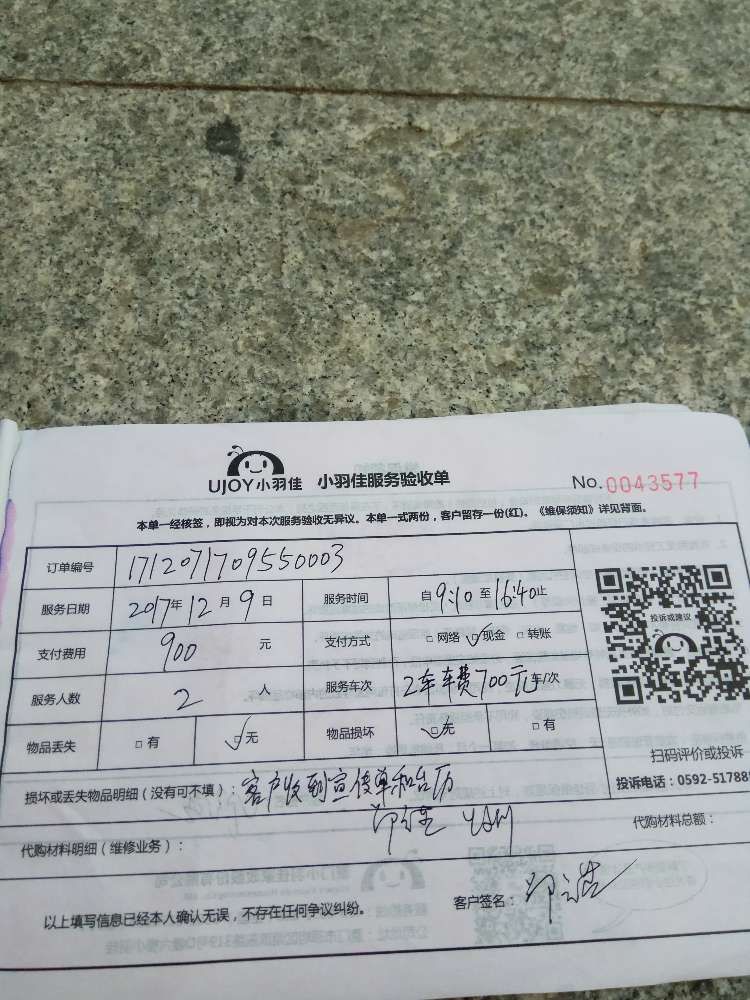 UJOY小羽佳 小羽佳服务验收单 No.0043577
本单一经核签，即视为对本次服务验收无异议。本单一式两份，客户留存一份(红)。《维保须知》详见背面。
订单编号 1712071709550003
服务日期 2017年12月9日 服务时间 自9:10至16:40止
支付费用 900元 支付方式 □网络 ☑现金 □转账
服务人数 2人 服务车次 2车车费700元车/次
物品丢失 □有 ☑无 物品损坏 ☑无 □有
投诉或建议
扫码评价或投诉
投诉电话：0592-51788
损坏或丢失物品明细（没有可不填）：客户收到宣传单和台历
代购材料明细（维修业务）： 代购材料总额：
以上填写信息已经本人确认无误，不存在任何争议纠纷。 客户签名：